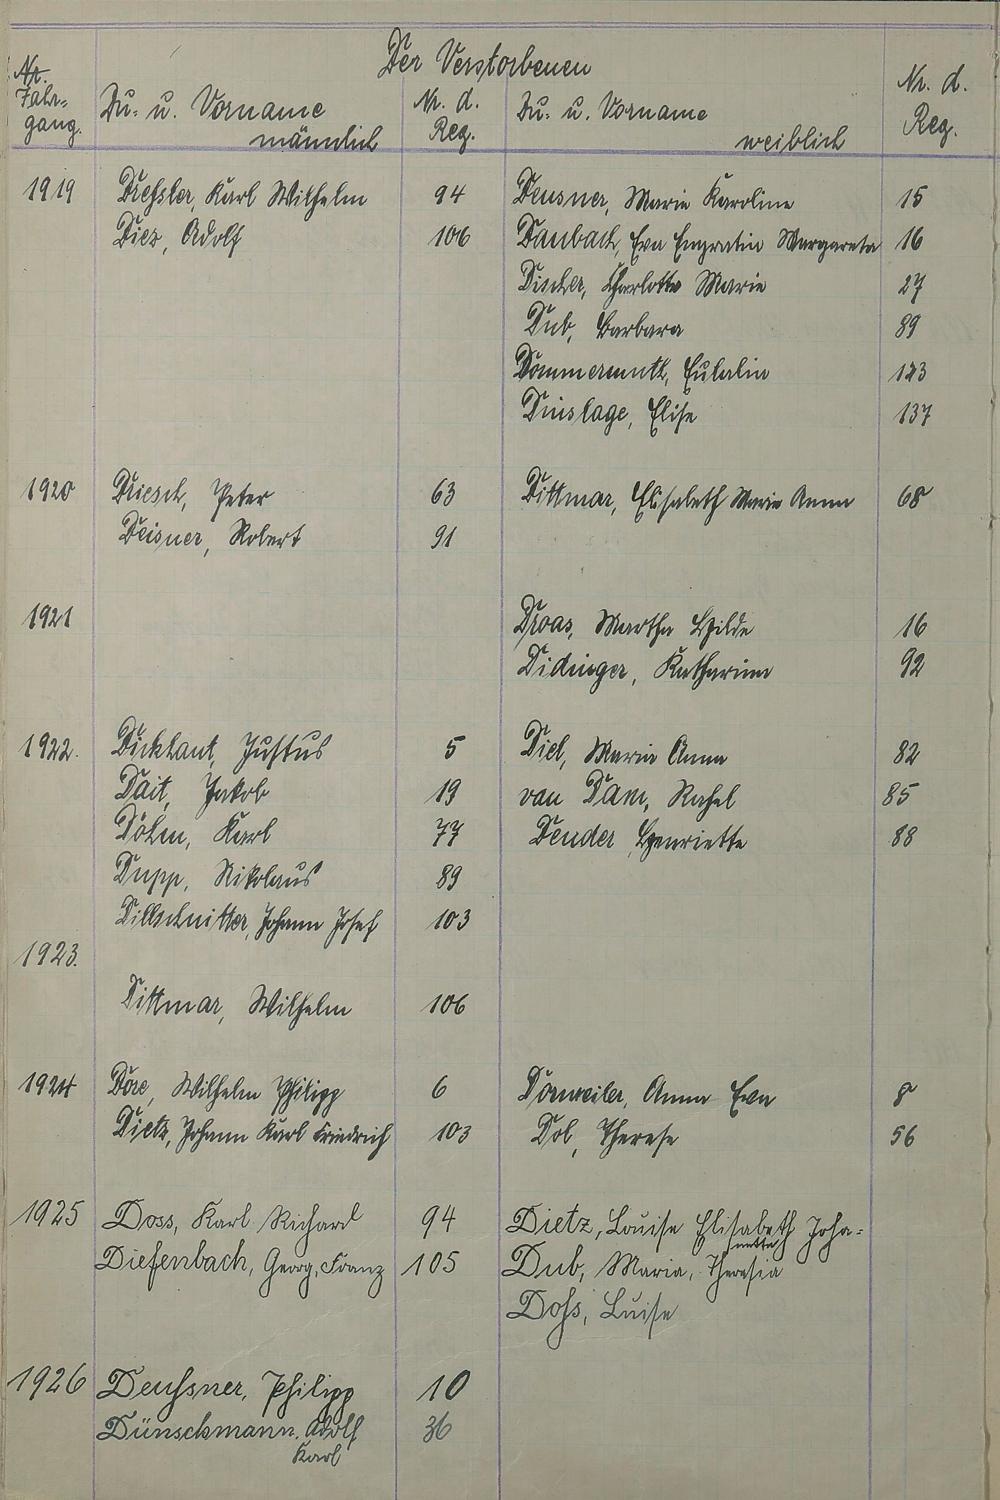 Der Verstorbenen
Nr.
Jahr=
gang.
Zu- u. Vorname
männlich
Nr. d.
Reg.
Zu- u. Vorname
weiblich
Nr. d.
Reg.
1919 Dreßler, Karl Wilhelm 94 Deusner, Marie Karoline 15
Diez, Adolf 106 Daubach, Eva Engratia Margareta 16
Discher, Charlotte Marie 27
Dub, Barbara 89
Dommermuth, Eulalia 123
Dinslage, Elise 137
1920 Driesch, Peter 63 Dittmar, Elisabeth Marie Anna 68
Deisner, Robert 91
1921 Droas, Martha Hilde 16
Didinger, Katharina 92
1922. Dickhaut, Justus 5 Diel, Maria Anna 82
Dait, Jakob 19 van Dam, Rahel 85
Döhn, Karl 77 Dender, Henriette 88
Dupp, Nikolaus 89
Dillschnitter, Johann Josef 103
1923.
Dittmar, Wilhelm 106
1924 Dore, Wilhelm Philipp 6 Dorweiler, Anna Eva 8
Dietz, Johann Karl Friedrich 103 Dob, Therese 56
1925 Doss, Karl Richard 94 Dietz, Louise Elisabeth Joha=
nette
Diefenbach, Georg, Franz 105 Dub, Maria, Theresia
Doß, Luise
1926 Deußner, Philipp 10
Dünschmann, Adolf 36
Karl